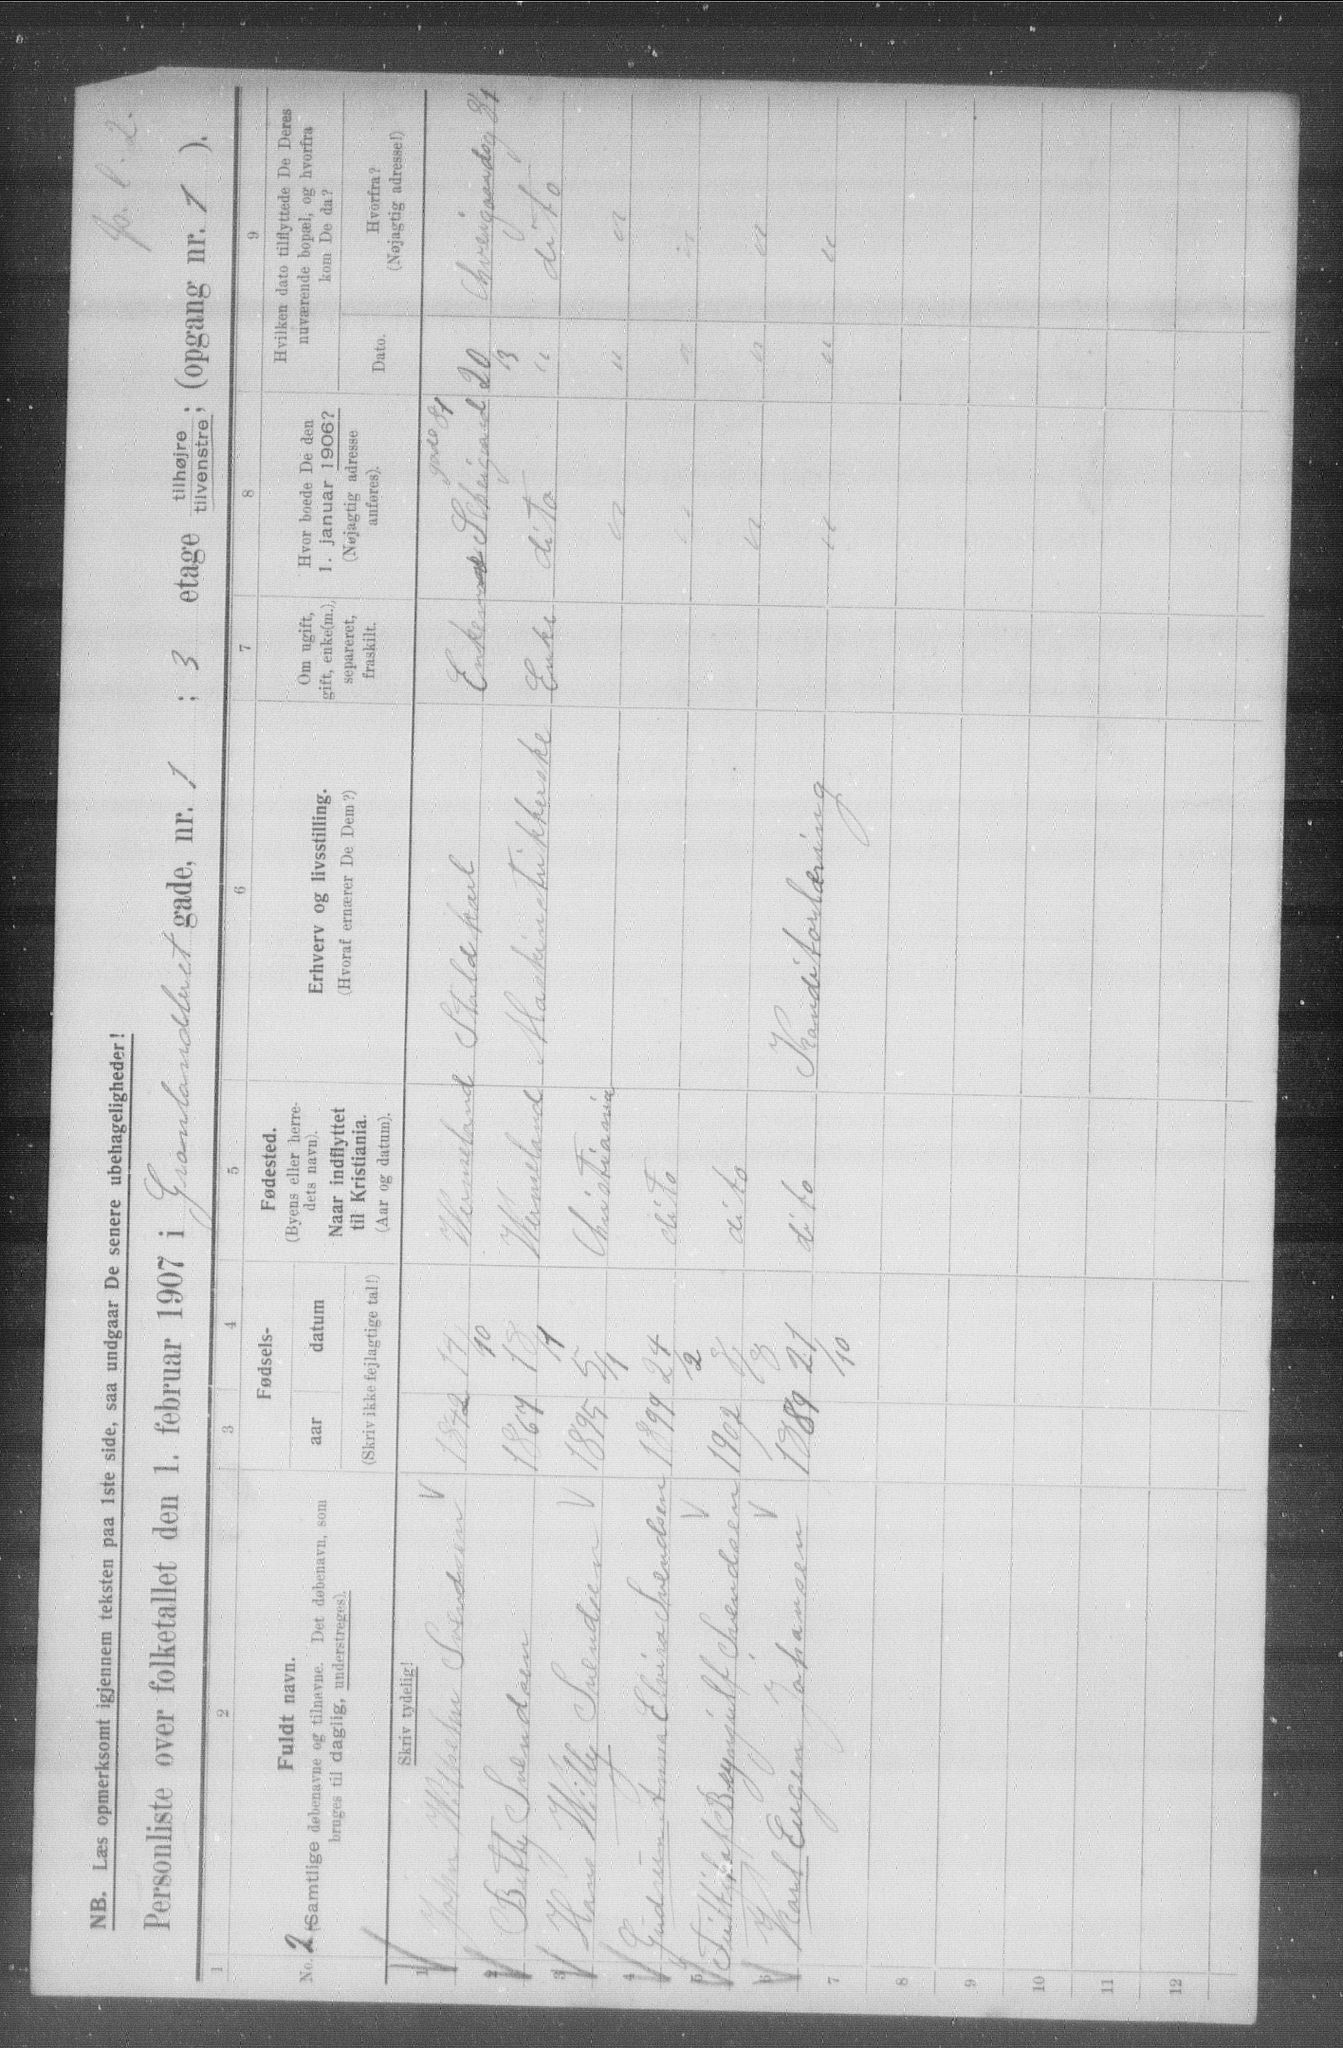 p. l. 2.
NB. Læs opmerksomt igjennem teksten paa 1ste side, saa undgaar De senere ubehageligheder!
Personliste over folketallet den 1. februar 1907 i Grønlandsleret gade, nr. 1 ; 3 etage tilhøjre tilvenstre; (opgang nr. 1 ).
1 2 3 4 5 6 7 8 9
No. 2
Fuldt navn.
(Samtlige døbenavne og tilnavne. Det døbenavn, som
bruges til daglig, understreges).
Fødsels-
aar datum
(Skriv ikke fejlagtige tal!)
Fødested.
(Byens eller herre-
dets navn).
Naar indflyttet
til Kristiania.
(Aar og datum).
Erhverv og livsstilling.
(Hvoraf ernærer De Dem?)
Om ugift,
gift, enke(m.),
separeret,
fraskilt.
Hvor boede De den
1. januar 1906?
(Nøjagtig adresse
anføres).
Hvilken dato tilflyttede De Deres
nuværende bopæl, og hvorfra
kom De da?
Dato.
Hvorfra?
(Nøjagtig adresse!)
Skriv tydelig!
1 John Vilhelm Svendsen 1872 17/10 Vermeland Staldkarl 20/3
2 Betty Svendsen 1867 18/1 Vermeland Maskinstrikkerske Enke dito " dito
3 Hans Willy Svendsen 1895 5/1 Christiania " " "
4 Gudrun Anna Elvira Svendsen 1899 24/2 dito " " "
5 Brynjulf Svendsen 1902 8/8 dito " " "
6 Karl Eugen Johansen 1889 21/10 dito Konditorlæring " " "
7
8
9
10
11
12